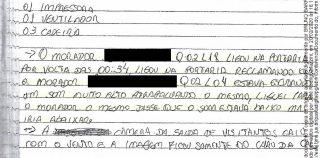 01 IMPRESSORA
01 VENTILADOR
03 CADEIRA
→ O MORADOR Q02 L18 LIGOU NA PORTARIA
POR VOLTA DAS 00:34, LIGOU NA PORTARIA RECLAMANDO
O MORADOR Q02 L04 ESTAVA
UM SOM MUITO ALTO ATRAPALHANDO O MESMO, LIGUEI PARA
O MORADOR O MESMO DISSE QUE O SOM ESTAVA BAIXO MAS
IRIA ABAIXAR.
→ A CÂMERA DA SAIDA DE VISITANTES CAIU
COM O VENTO E A IMAGEM FICOU SOMENTE DO CHÃO DA